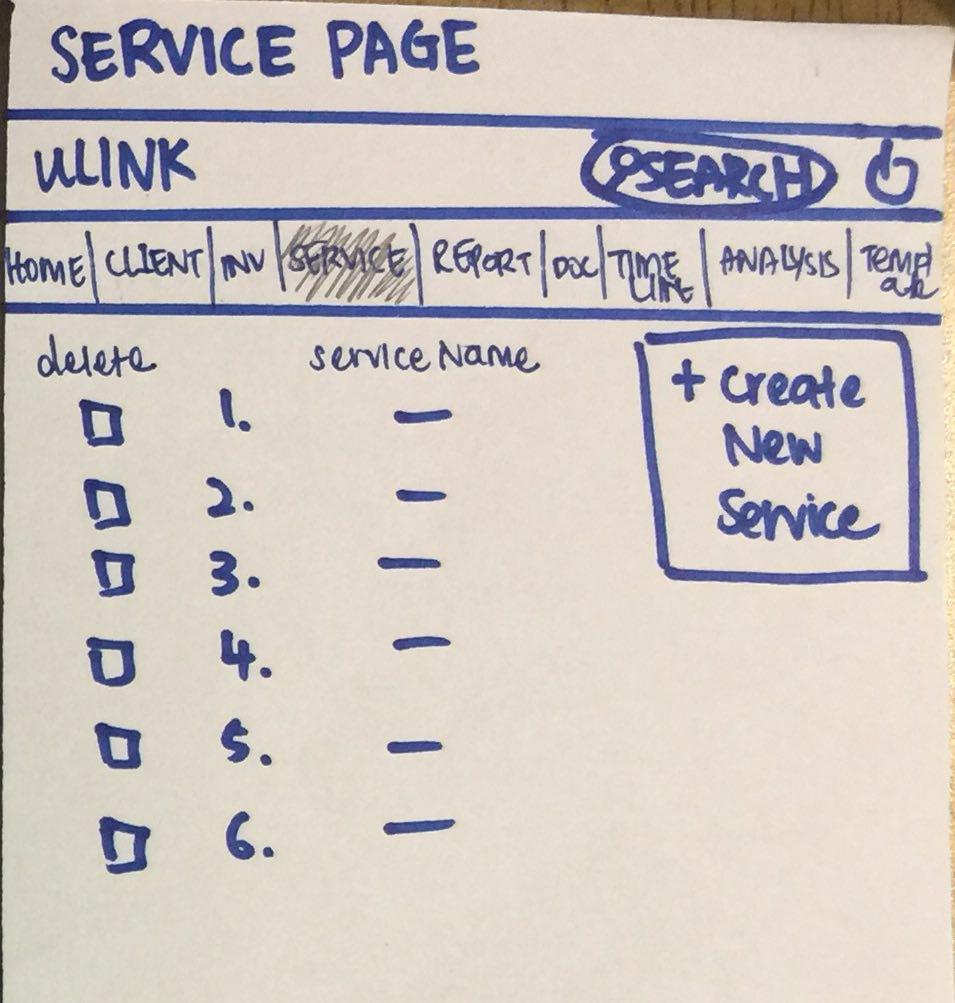 SERVICE PAGE
ULINK SEARCH
HOME CLIENT INV SERVICE REPORT DOC TIME LINE ANALYSIS TEMPLATE
delete service Name
+ Create
New
Service
1. –
2. –
3. –
4. –
5. –
6. –